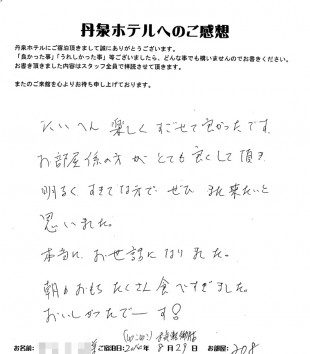 丹泉ホテルへのご感想
丹泉ホテルにご宿泊頂きまして誠にありがとうございます。
「良かった事」「うれしかった事」等ございましたら、どんな事でも構いませんのでお書きください。
お書き頂きました内容はスタッフ全員で拝読させて頂きます。
またのご来館を心よりお待ち申し上げております。
たいへん 楽しく すごせて 良かったです
お部屋係の方が とても 良くして 頂き
明るく すてきな方で ぜひ また 来たいと
思いました。
本当に お世話に なりました。
朝の おもち たくさん 食べすぎました。
おいしかったでーす!
お名前: 様 ご宿泊日: 8月29日 お部屋: 208